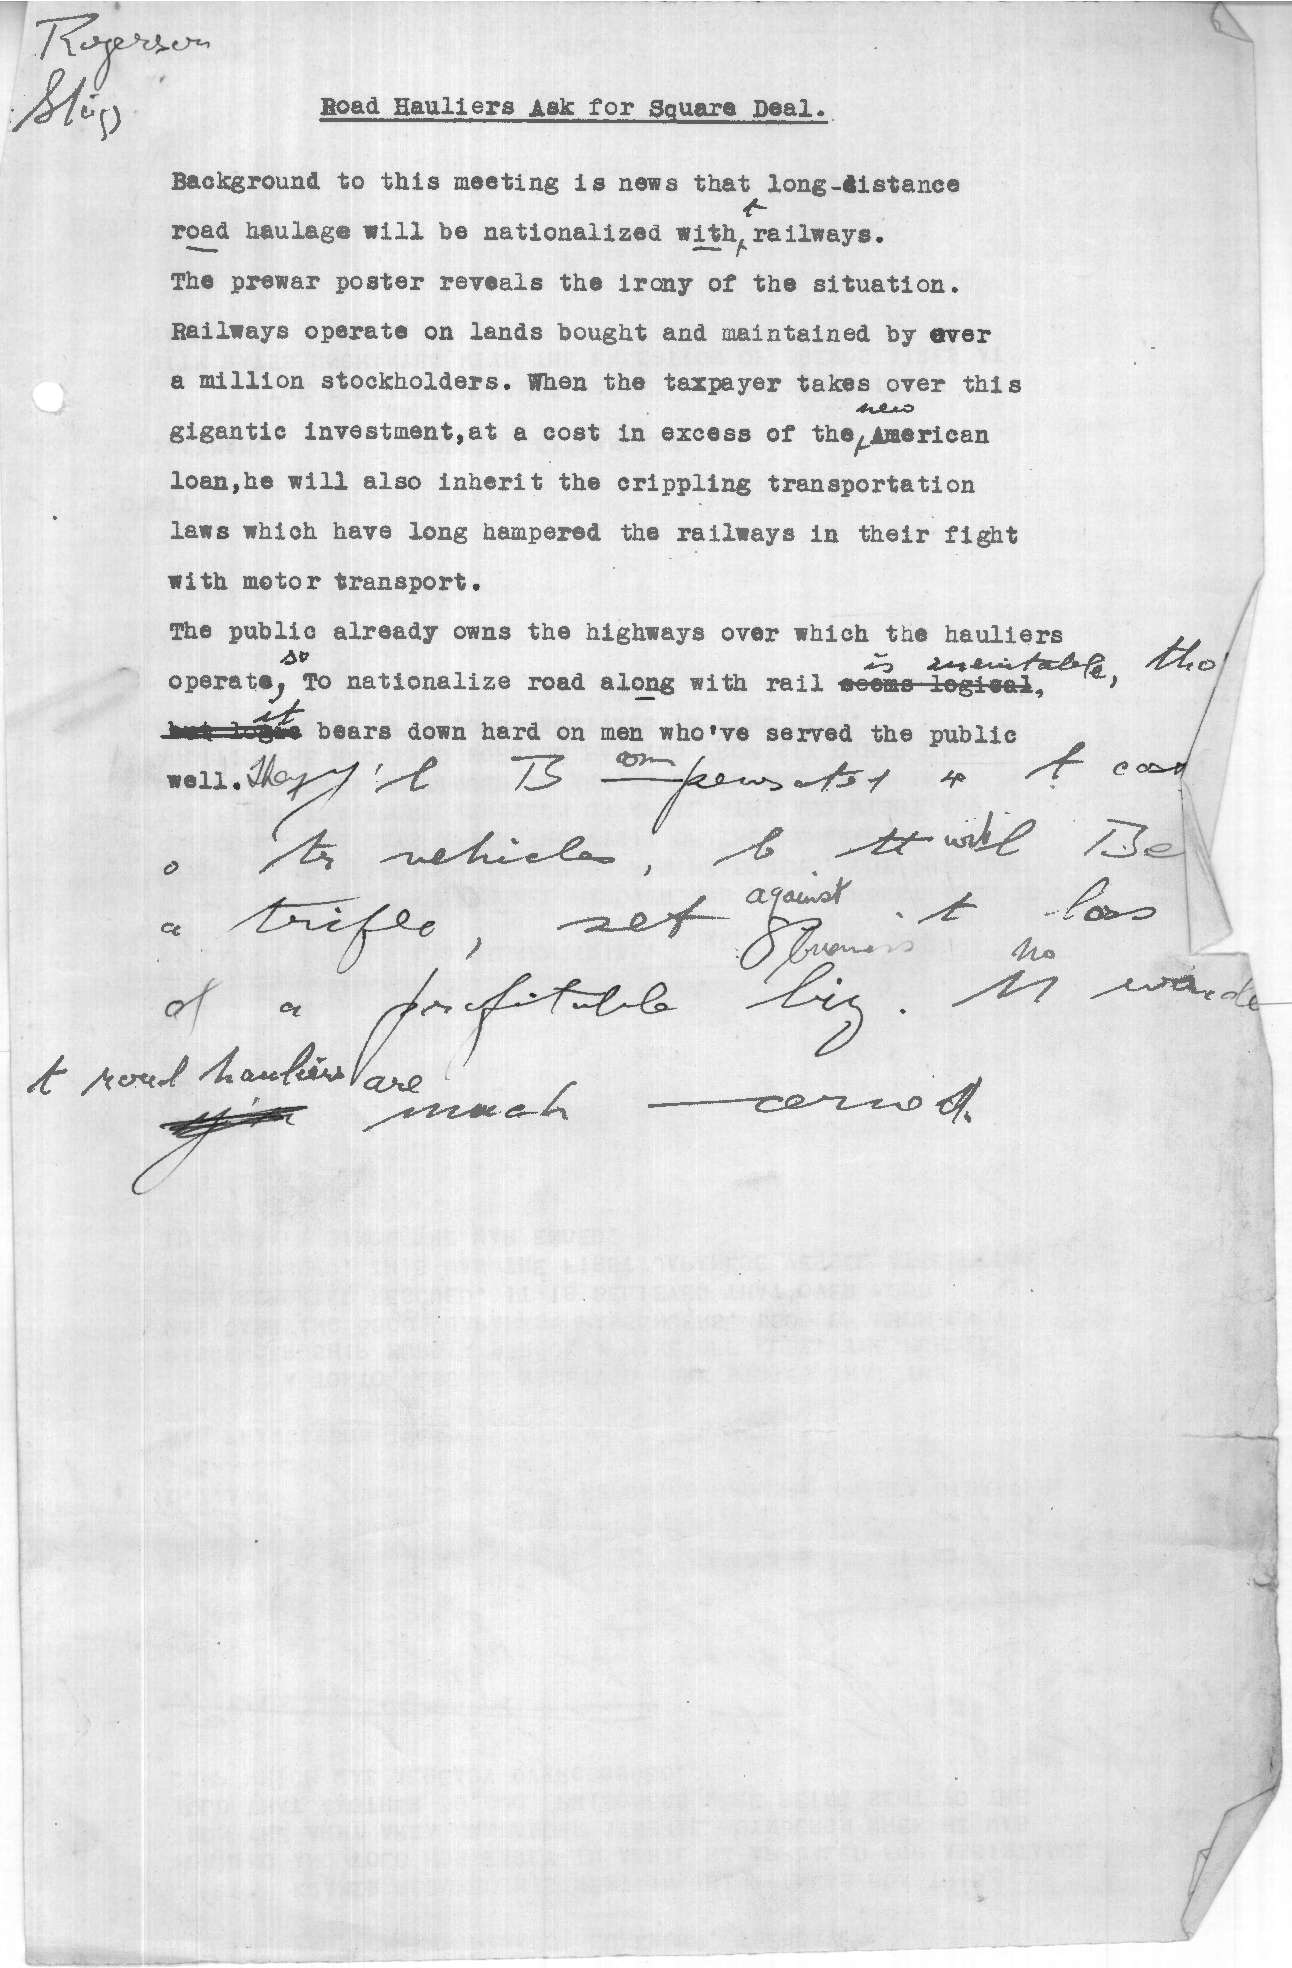 Rogerson
Road Hauliers Ask for Square Deal.
Background to this meeting is news that long-distance
t
road haulage will be nationalized with railways.
The prewar poster reveals the irony of the situation.
Railways operate on lands bought and maintained by over
a million stockholders. When the taxpayer takes over this
new
gigantic investment,at a cost in excess of the American
loan,he will also inherit the crippling transportation
laws which have long hampered the railways in their fight
with motor transport.
The public already owns the highways over which the hauliers
so is inevitable, tho'
operate, To nationalize road along with rail seems logical,
it
but logic bears down hard on men who've served the public
well. They'll B com—pensated 4 t cost
o tr vehicles, b tt will Be
against
a trifle, set t loss
business no
of a profitable biz. N wonder
t road hauliers are
much —cerned.